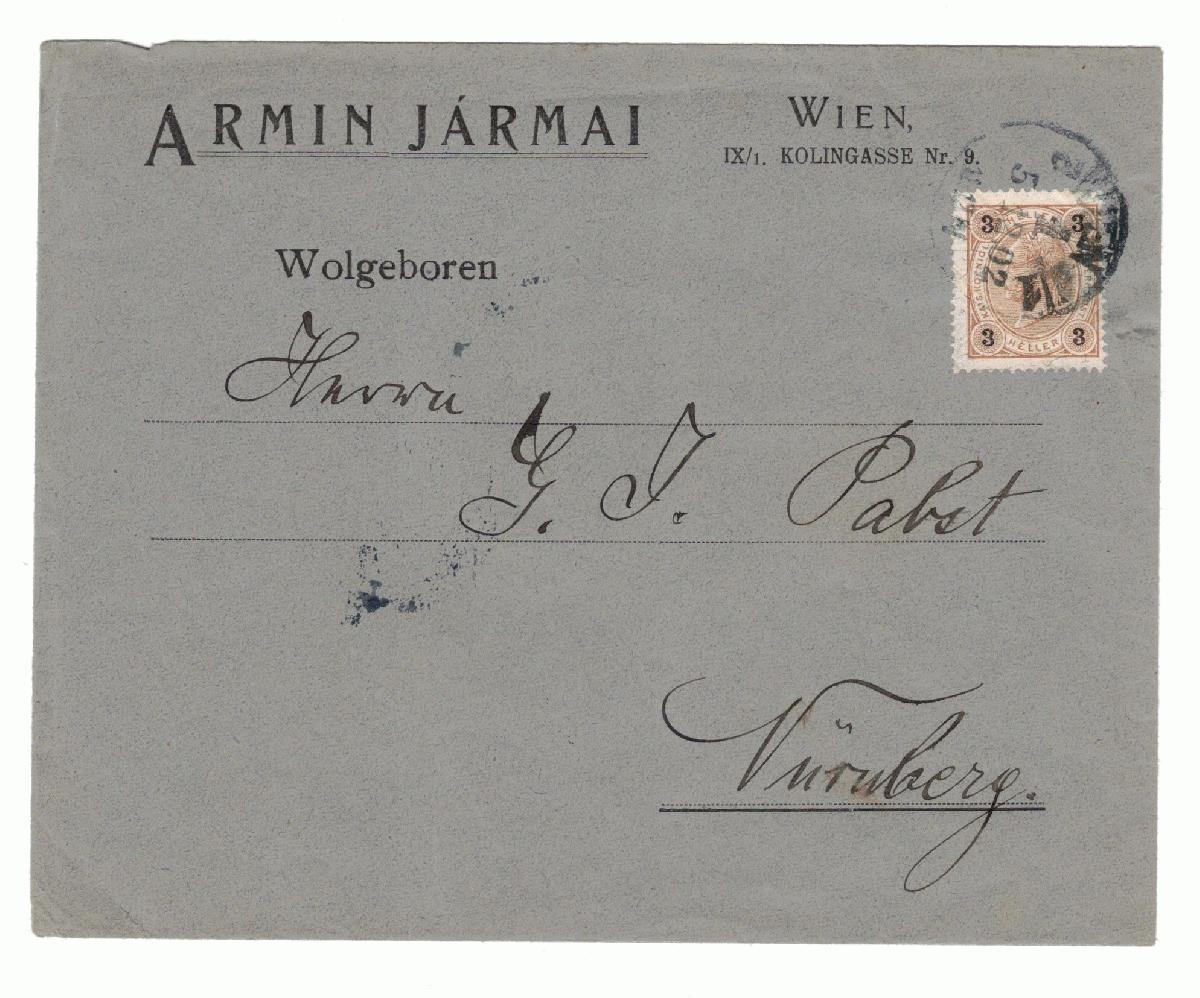 ARMIN JÁRMAI
WIEN,
IX/1. KOLINGASSE Nr. 9.
Wolgeboren
Herrn
G. J. Pabst
Nürnberg.
3 3
3 3
HELLER
02